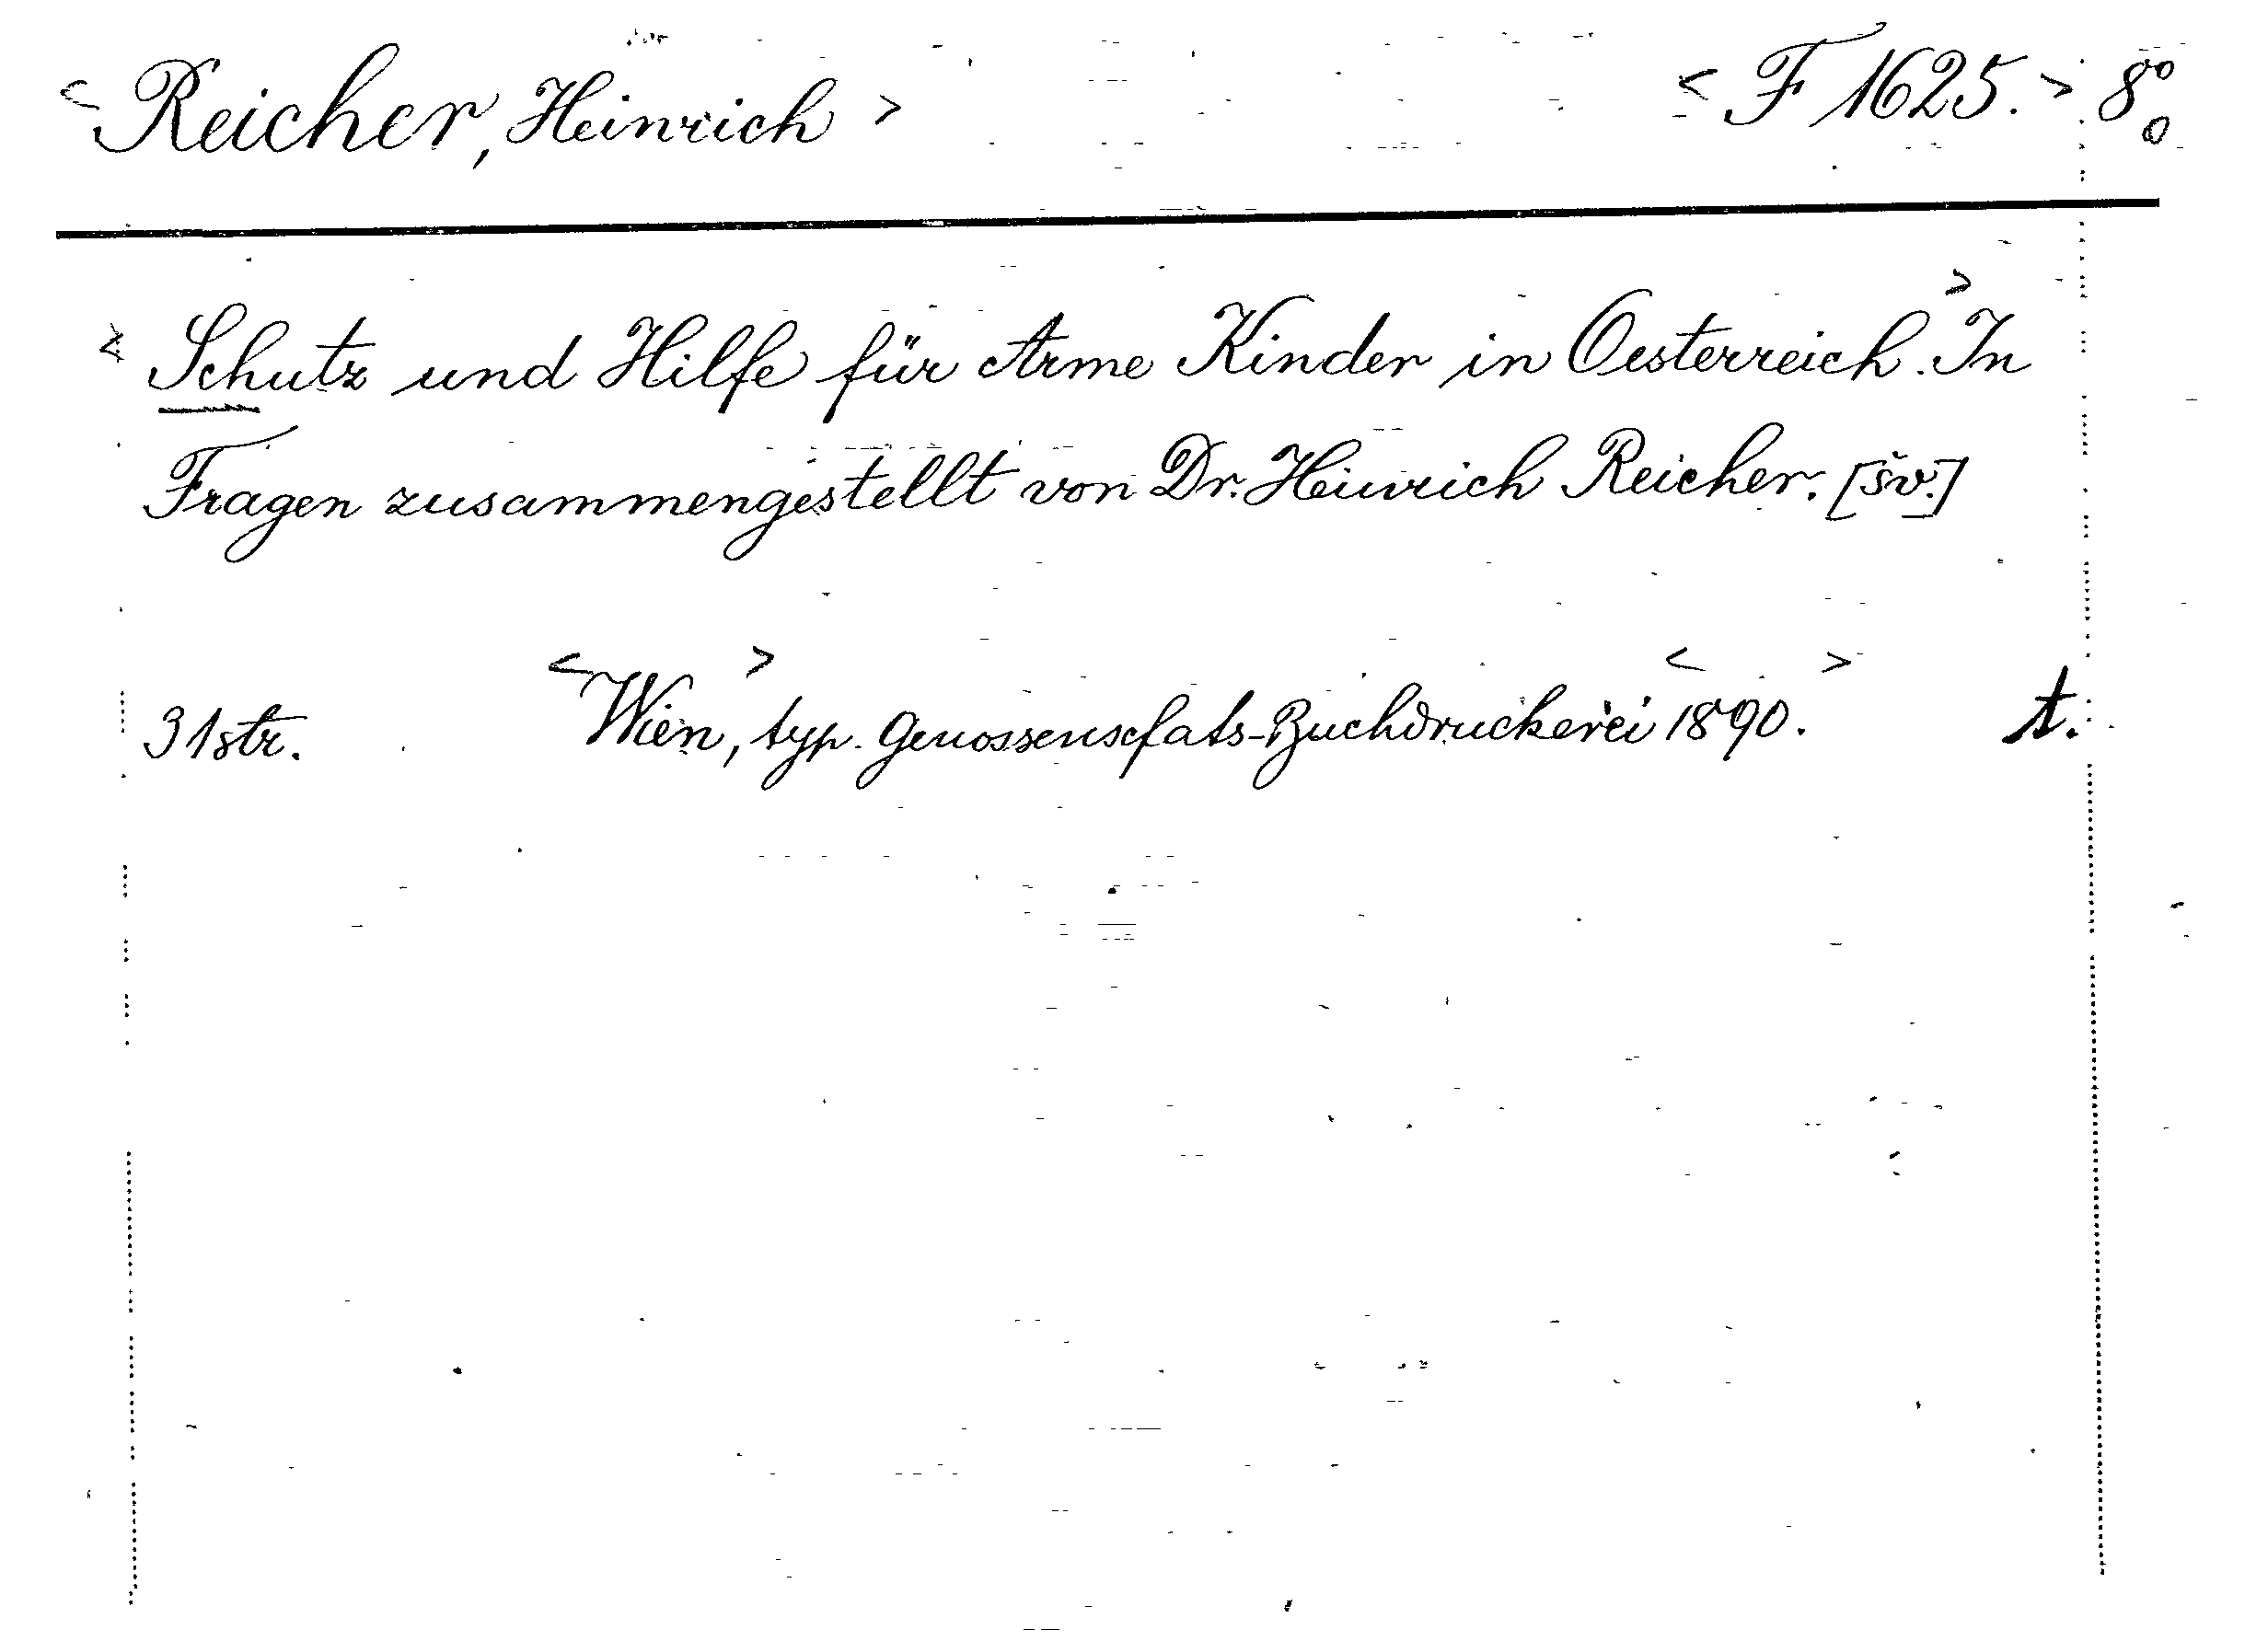 < Reicher, Heinrich > < F 1625. > 8°
o
< Schutz und Hilfe für Arme Kinder in Oesterreich. > In
Fragen zusammengestellt von Dr. Heinrich Reicher. [šv.]
31 str. < Wien, > typ. Genossenscfats-Buchdruckerei < 1890. > t.